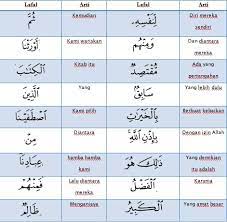 Lafal Arti Lafal Arti
ثُمَّ Kemudian لِنَفْسِهِۦ Diri mereka sendiri
أَوْرَثْنَا Kami wariskan وَمِنْهُم Dan diantara mereka
ٱلْكِتَٰبَ Kitab itu مُّقْتَصِدٌ Ada yang pertangahan
ٱلَّذِينَ Yang سَابِقٌۢ Yang lebih dulu
ٱصْطَفَيْنَا Kami pilih بِٱلْخَيْرَٰتِ Berbuat kebaikan
مِنْ Diantara بِإِذْنِ ٱللَّهِ Dengan izin Allah
عِبَادِنَا hamba hamba kami ذَٰلِكَ هُوَ Yang demikian itu adalah
فَمِنْهُمْ Lalu diantara mereka ٱلْفَضْلُ Karunia
ظَالِمٌ ٱلْكَبِيرُ